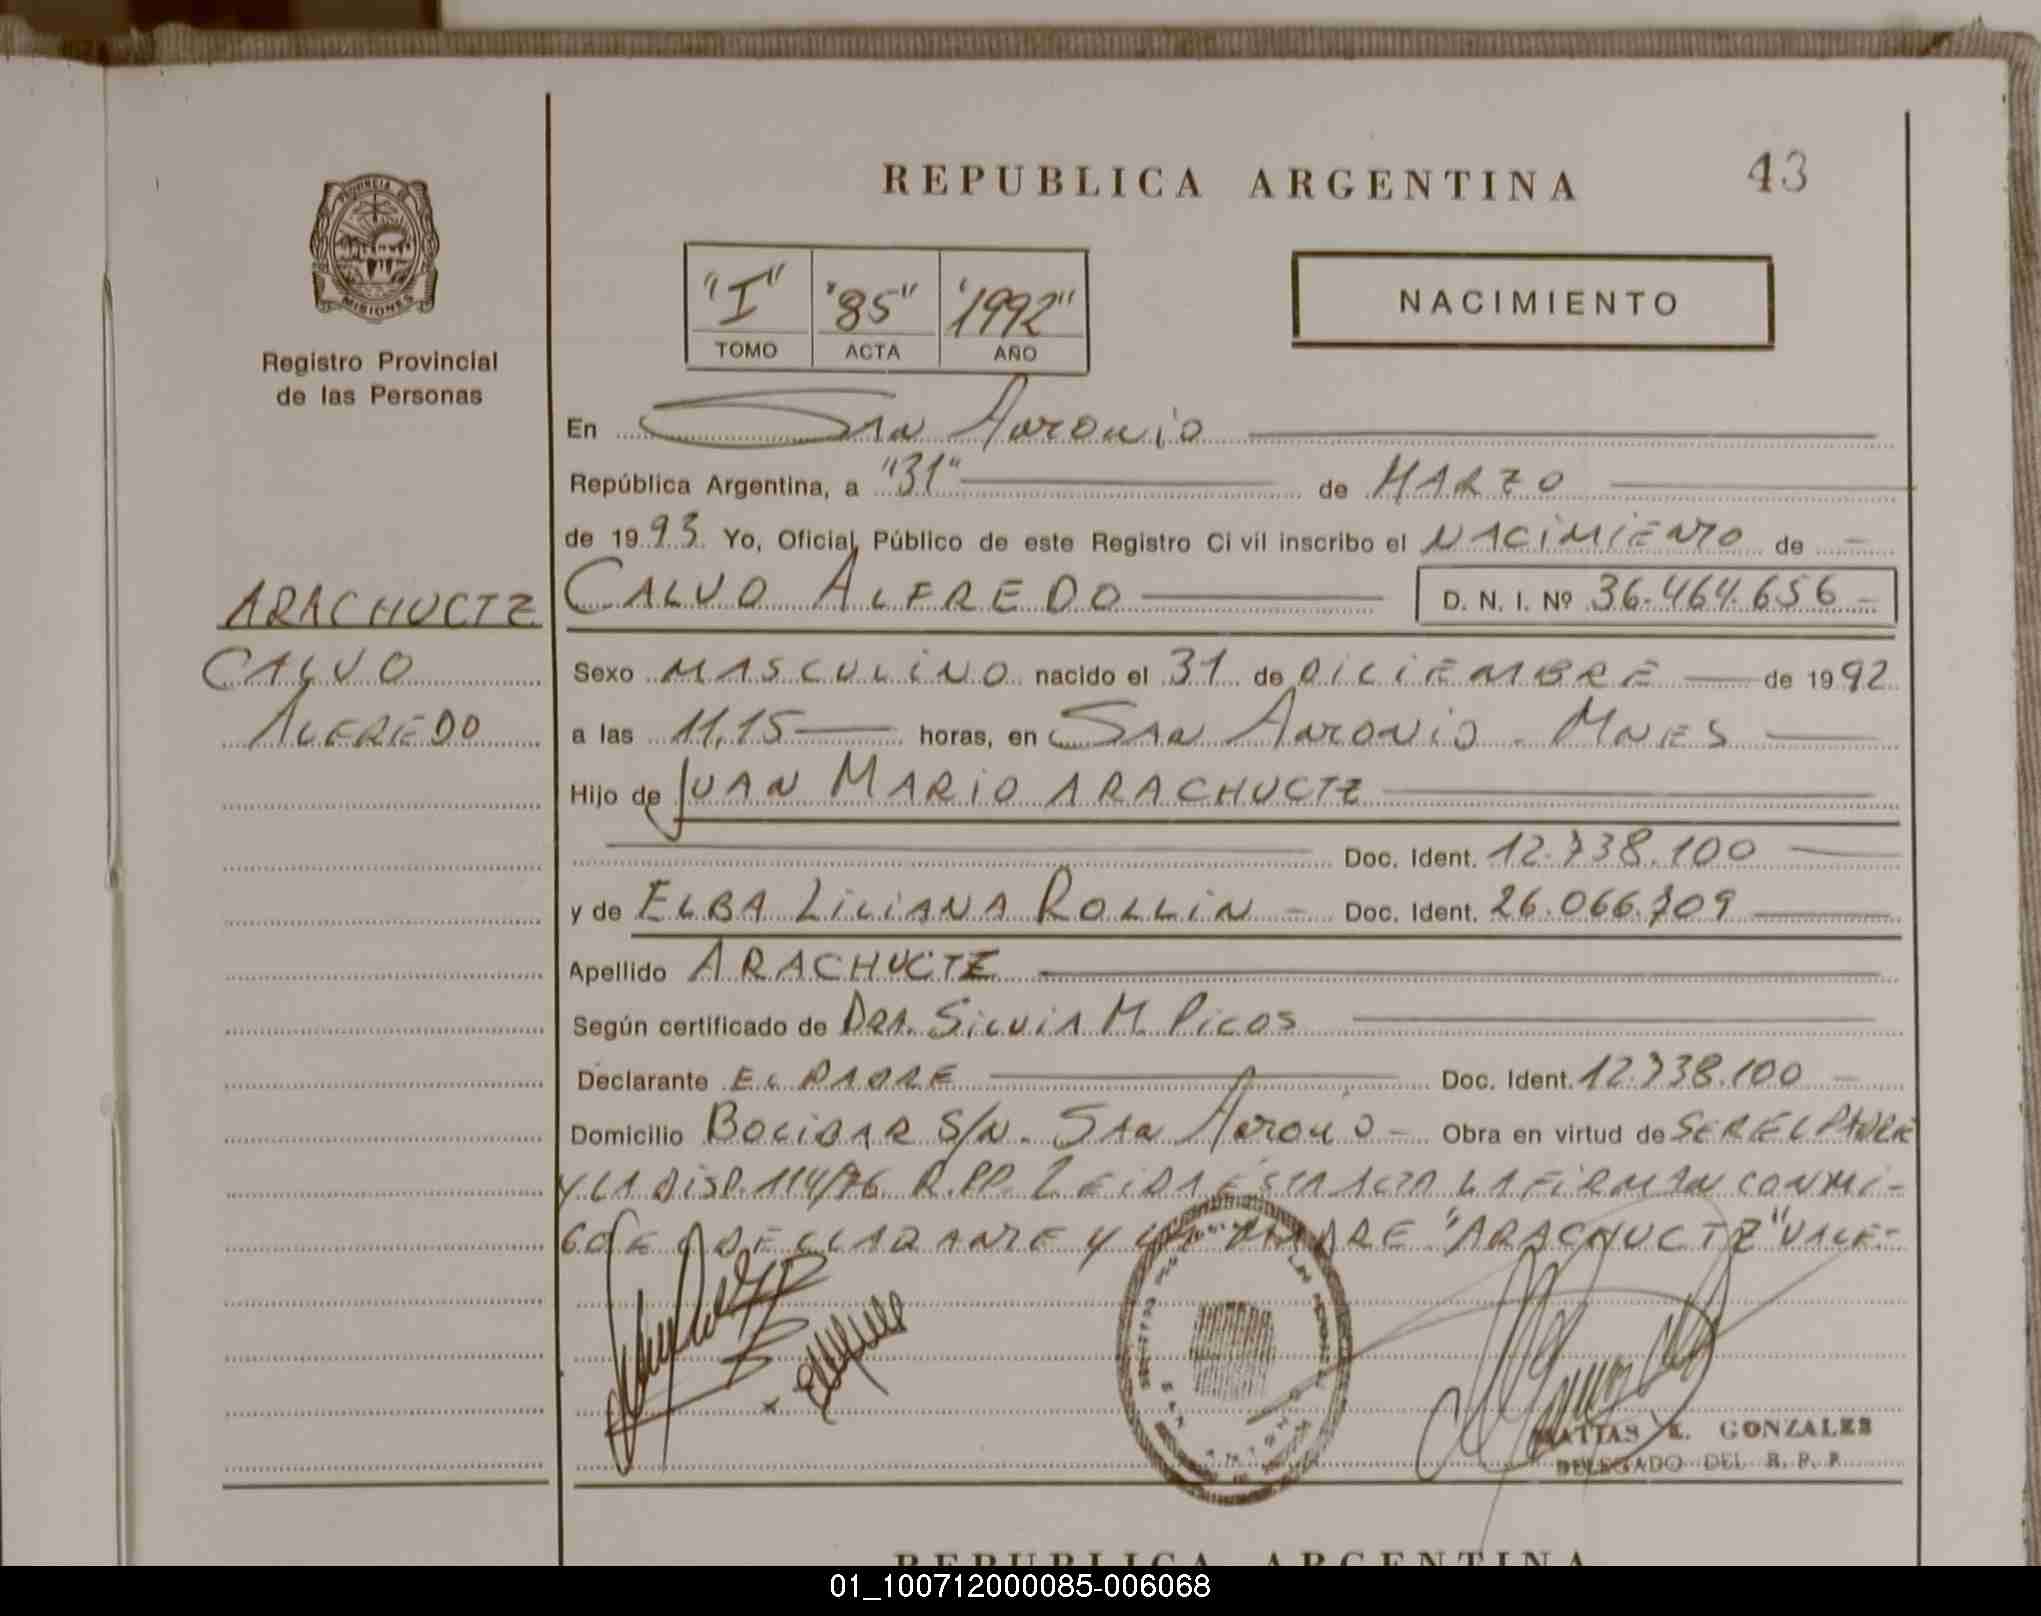 REPUBLICA ARGENTINA 43
PROVINCIA DE
MISIONES
Registro Provincial
de las Personas
"I" "85" "1992"
TOMO ACTA AÑO
NACIMIENTO
En San Antonio
República Argentina, a "31" de MARZO
de 1993. Yo, Oficial Público de este Registro Civil inscribo el NACIMIENTO de -
CALVO ALFREDO D. N. I. Nº 36.464.656 -
ARACHUCTZ
CALVO
ALFREDO
Sexo MASCULINO nacido el 31 de DICIEMBRE de 1992
a las 11,15 horas, en SAN ANTONIO - MNES
Hijo de JUAN MARIO ARACHUCTZ
Doc. Ident. 12.738.100
y de ELBA LILIANA ROLLIN - Doc. Ident. 26.066.709
Apellido ARACHUCTZ
Según certificado de DRA. SILVIA M. PICOS
Declarante EL PADRE Doc. Ident. 12.738.100 -
Domicilio BOLIBAR S/N. SAN ANTONIO - Obra en virtud de SER EL PADRE
Y LA DISP. 114/76 R.PP. LEIDA ESTA ACTA LA FIRMAN CONMI-
GO E DECLARANTE Y LA MADRE "ARACHUCTZ" VALE-
MATIAS GONZALES
DELEGADO DEL R. P. P.
REPUBLICA ARGENTINA
01_100712000085-006068